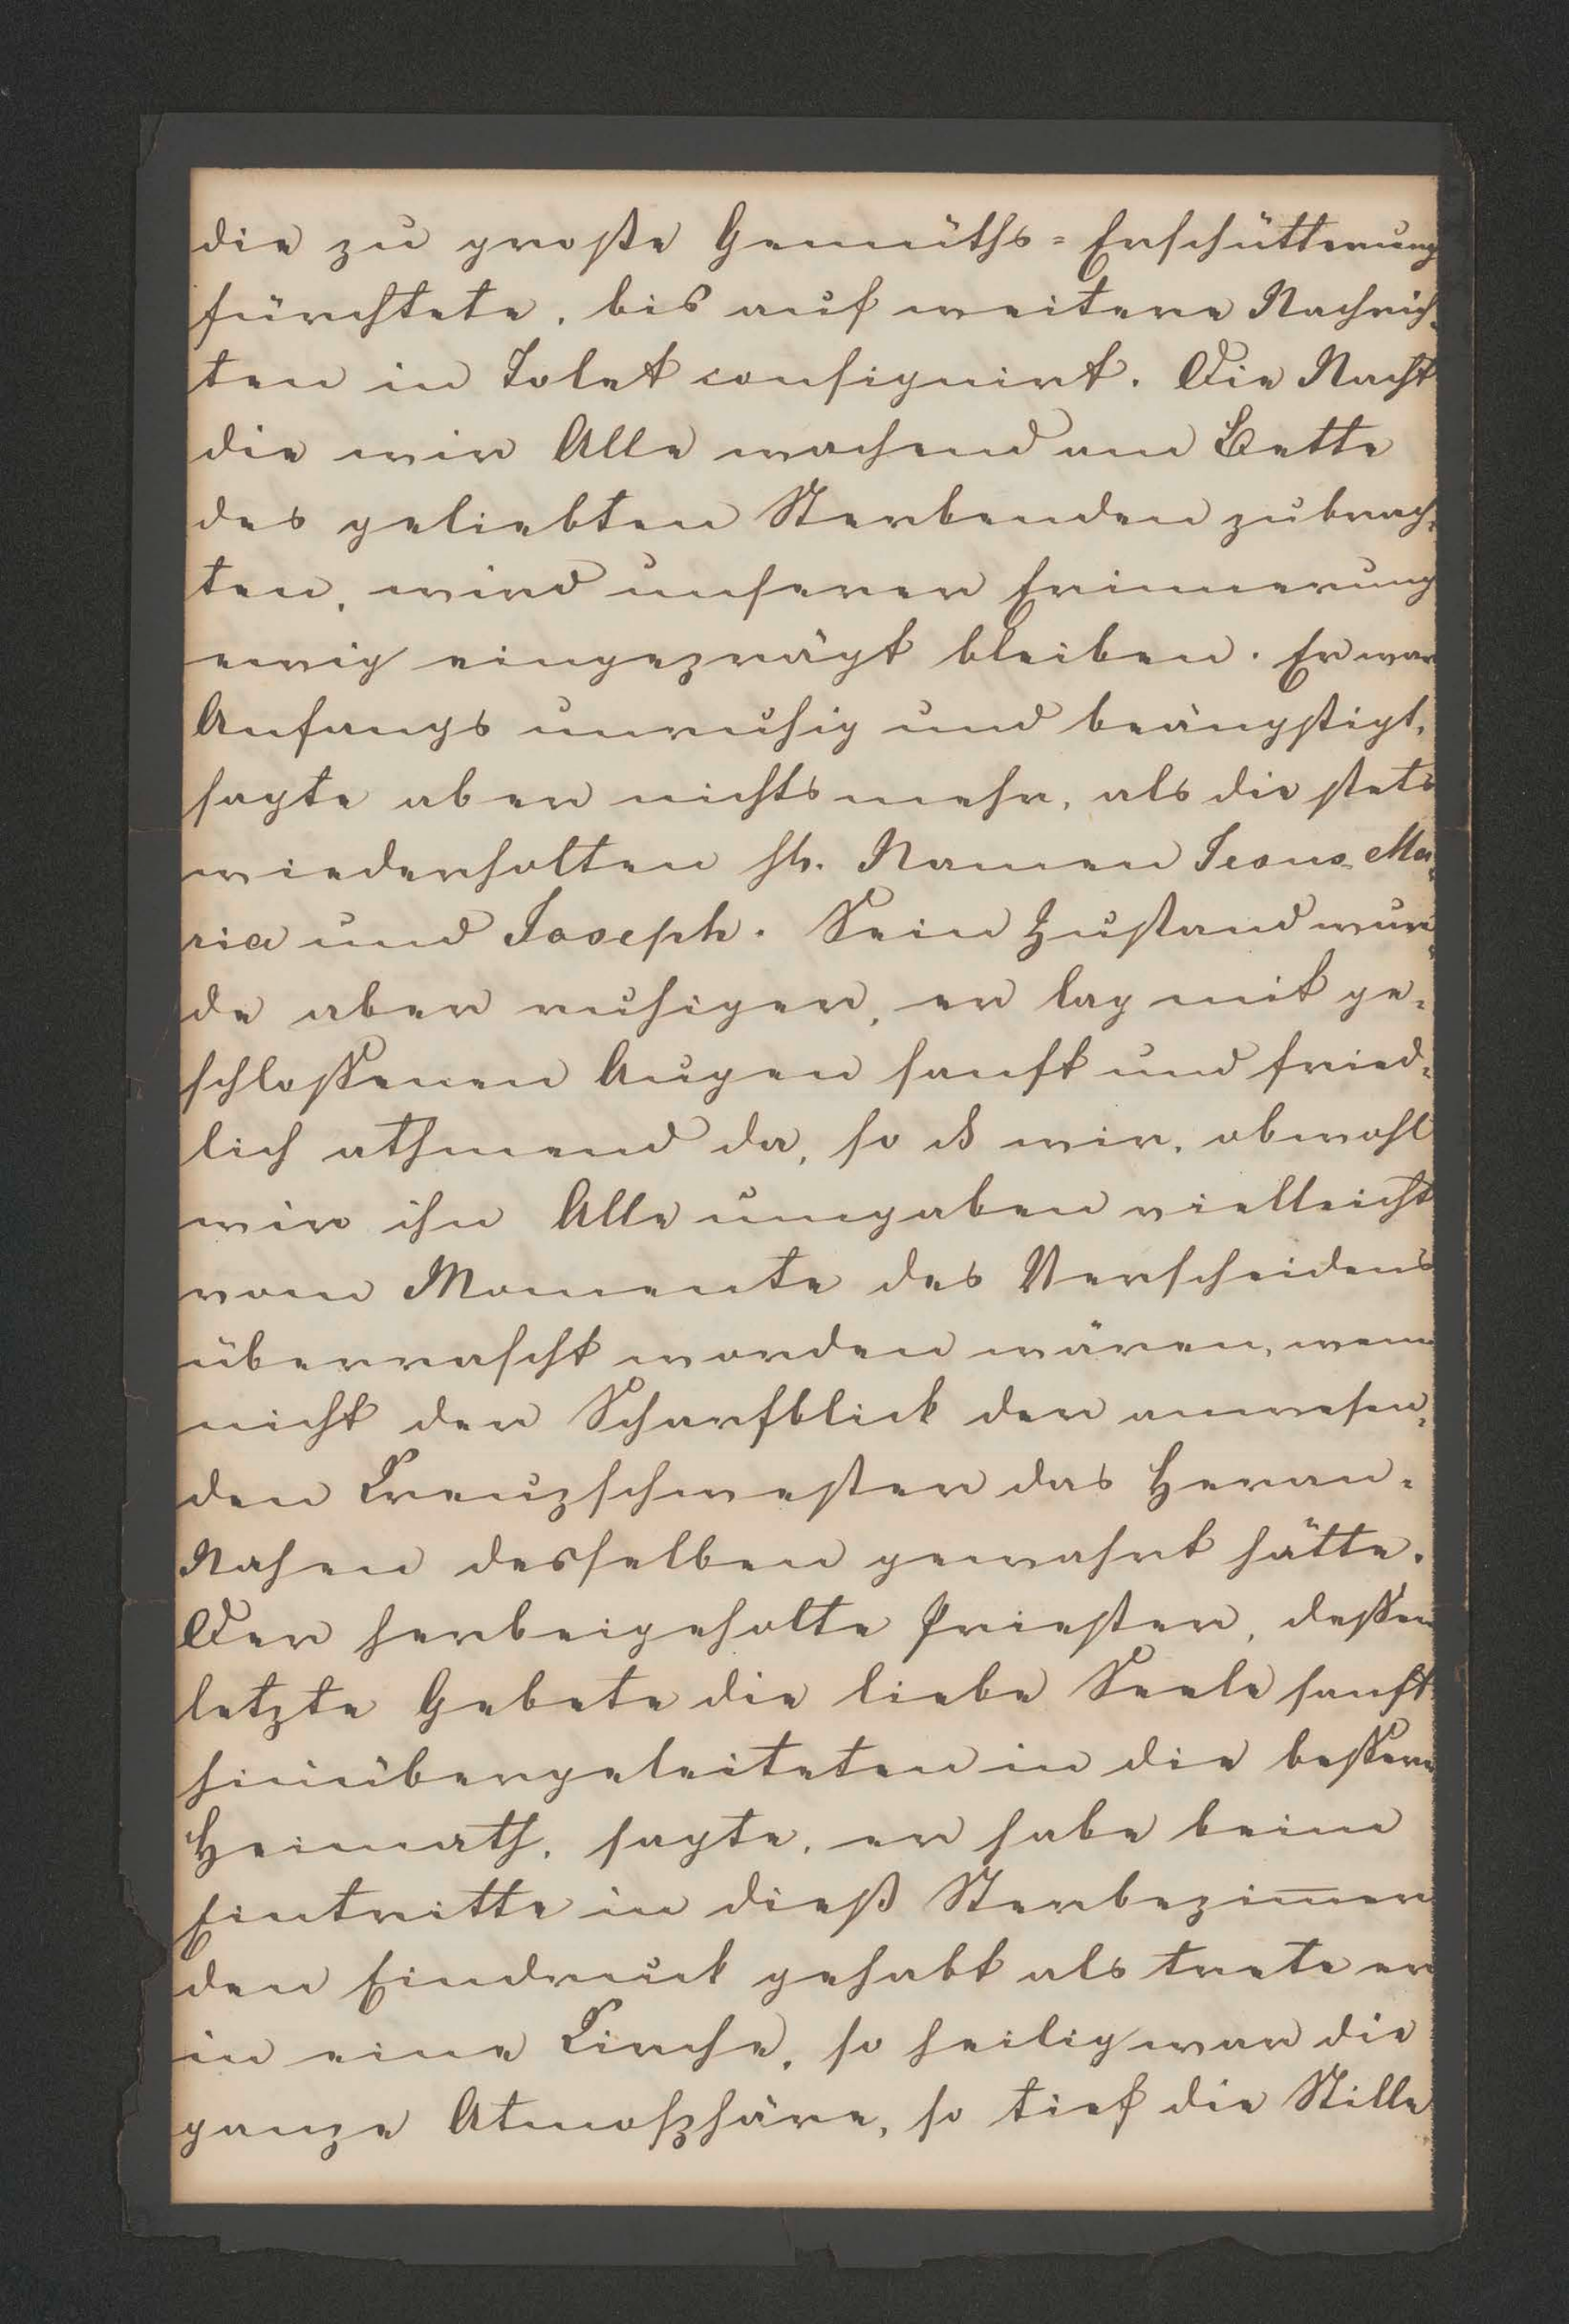 die zu große Gemüths=Erschütterung
fürchtete, bis auf weitere Nachrich=
ten in Tolet consignirt. Die Nacht
die wir Alle wachend am Bette
des geliebten Sterbenden zubrach=
ten, wird unserer Erinnerung
ewig eingeprägt bleiben. Er war
Anfangs unruhig und beängstigt,
sagte aber nichts mehr, als die stets
wiederholten hl. Namen Jesus Ma=
ria und Joseph. Sein Zustand wur=
de aber ruhiger, er lag mit ge=
schloßenen Augen sanft und fried=
lich athmend da, so daß wir, obwohl
wir ihn Alle umgaben vielleicht
vom Momente des Verscheidens
überrascht worden wären, wenn
nicht der Scharfblick der anwesen=
den Kreuzschwester das Heran=
Nahen desselben gewahrt hätte.
Der herbeigeholte Priester, deßen
letzte Gebete die liebe Seele sanft
hinübergeleiteten in die beßere
Heimath, sagte, er habe beim
Eintritte in dieß Sterbezim̅er
den Eindruck gehabt als trete er
in eine Kirche, so heilig war die
ganze Atmosphäre, so tief die Stille